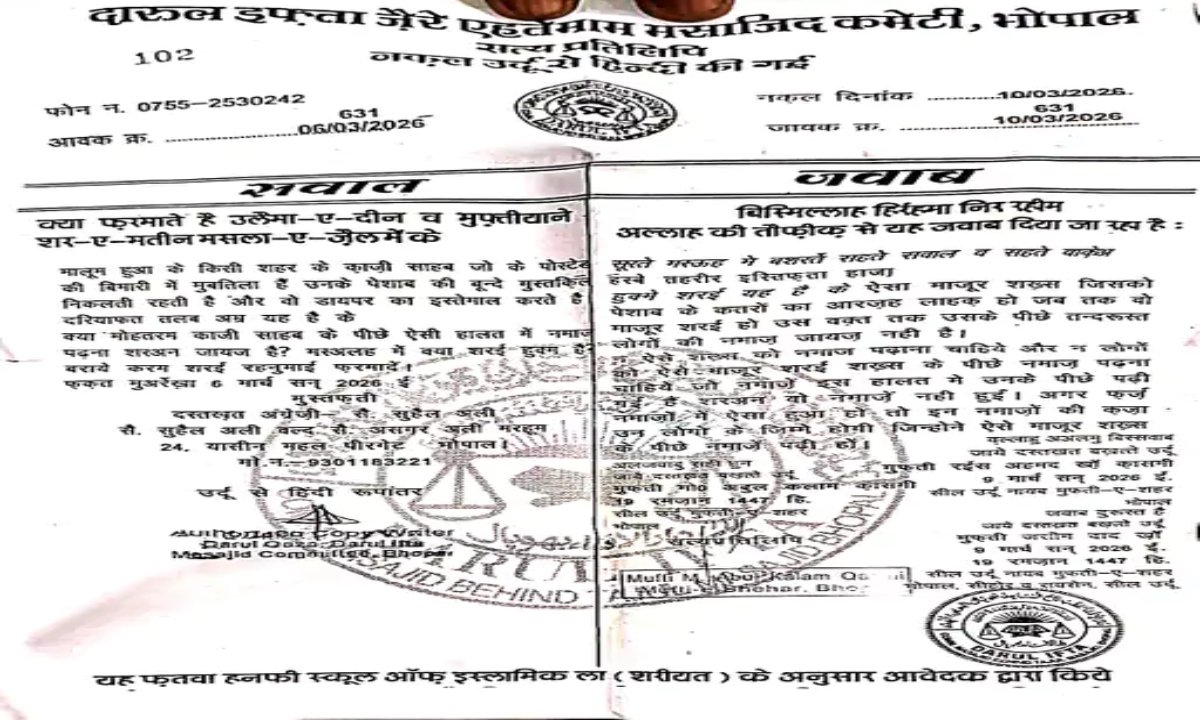 दारुल इफ़्ता ज़ेरे एहतेमाम मसाजिद कमेटी, भोपाल
सत्य प्रतिलिपि
नकल उर्दू से हिन्दी की गई
102
फोन न. 0755-2530242
631
आवक क्र. 06/03/2026
नकल दिनांक 10/03/2026
631
जावक क्र. 10/03/2026
सवाल
क्या फ़रमाते है उलैमा-ए-दीन व मुफ़्तीयाने
शर-ए-मतीन मसला-ए-ज़ैल में के
मालूम हुआ के किसी शहर के क़ाज़ी साहब जो के पोस्टेड
की बिमारी में मुबतिला हैं उनके पेशाब की बून्दे मुस्तकिल
निकलती रहती है और वो डायपर का इस्तेमाल करते है
दरियाफत तलब अम्र यह है के
क्या मोहतरम काज़ी साहब के पीछे ऐसी हालत में नमाज
पढ़ना शरअन जायज है? मसअलह में क्या शरई हुक्म है
बराये करम शरई रहनुमाई फरमादें।
फ़क़त मुअर्रेख़ा 6 मार्च सन् 2026 ई
मुस्तफ़ती
दस्तख़त अंग्रेज़ी- सै. सुहैल अली
सै. सुहैल अली वल्द सै. असगर अली मरहूम
24, यासीन महल पीरगेट भोपाल।
मो.न.-9301183221
उर्दू से हिंदी रूपांतर
Authorised Copy Writer
Darul Qaza, Darul Ifta
Masajid Committee, Bhopal
जवाब
बिस्मिल्लाह हिर्रहमा निर रहीम
अल्लाह की तौफ़ीक़ से यह जवाब दिया जा रहा है :
सूरते मसऊह मे बशर्ते सहते सवाल व सहते वाक़ेअ
हस्बे तहरीर इस्तिफ़ता हाज़ा
हुक्मे शरई यह है के ऐसा माजूर शख़्स जिसको
पेशाब के कतरों का आरज़ह लाहक़ हो जब तक वो
माजूर शरई हो उस वक़्त तक उसके पीछे तन्दरूस्त
लोगों की नमाज़ जायज़ नही है।
न ऐसे शख़्स को नमाज पढ़ाना चाहिये और न लोगों
को ऐसे माजूर शरई शख़्स के पीछे नमाज़ पढ़ना
चाहिये जो नमाज़ें इस हालत मे उनके पीछे पढ़ी
गई है शरअन वो नमाज़े नही हुई। अगर फ़र्ज
नमाज़ों में ऐसा हुआ हो तो इन नमाज़ों की क़ज़ा
उन लोगों के ज़िम्मे होगी जिन्होने ऐसे माजूर शख़्स
के पीछे नमाजें पढ़ी हों।
वल्लाहु अअलमु बिस्सवाब
जाये दस्तख़त बख़ते उर्दू
मुफ़ती रईस अहमद खाँ क़ासमी
9 मार्च सन् 2026 ई.
सील उर्दू नायब मुफ़्ती-ए-शहर
भोपाल
जवाब दुरूस्त है
जाये दस्तख़त बख़ते उर्दू
मुफ़्ती जसीम दाद खाँ
9 मार्च सन् 2026 ई.
19 रमज़ान 1447 हि.
सील उर्दू नायब मुफ़्ती-ए-शहर
भोपाल, सीहोर व रायसेन, सील उर्दू
अलजवाबु सही हुन
जाये दस्तख़त बख़ते उर्दू
मुफ़्ती मो0 अबुल कलाम क़ासमी
19 रमज़ान 1447 हि.
सील उर्दू मुफ़्ती-ए-शहर
भोपाल
सत्यप्रतिलिपि
Mufti M. Abul Kalam
DARUL IFTA
MASAJID BEHIND
MASAJID BHOPAL
DARUL IFTA
यह फ़तवा हनफी स्कूल ऑफ़ इस्लामिक ला ( शरीयत ) के अनुसार आवेदक द्वारा किये